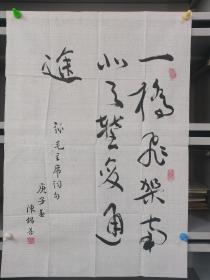 一桥飞架南
北天堑变通
途
录毛主席词句
庚子春